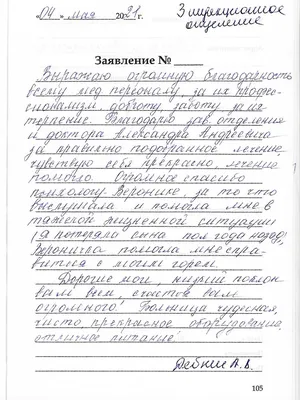 „04" мая 2021 г.
3 инфекционное
отделение
Заявление № ____
Выражаю огромную благодарность
всему мед персоналу, за их профес-
сионализм, доброту, заботу, за их
терпение. Благодарю зав. отделения
и доктора Александра Андреевича
за правильно подобранное лечение,
чувствую себя прекрасно, лечение
помогло. Огромное спасибо
психологу Веронике, за то что
выслушала и помогла мне в
тяжёлой жизненной ситуации
(я потеряла сына пол года назад)
Вероничка помогла мне спра-
виться с моим горем.
Дорогие мои, низкий поклон
вам всем, счастья вам
огромного! Больница чудесная,
чисто, прекрасное оборудование,
отличное питание!
А.В.
105